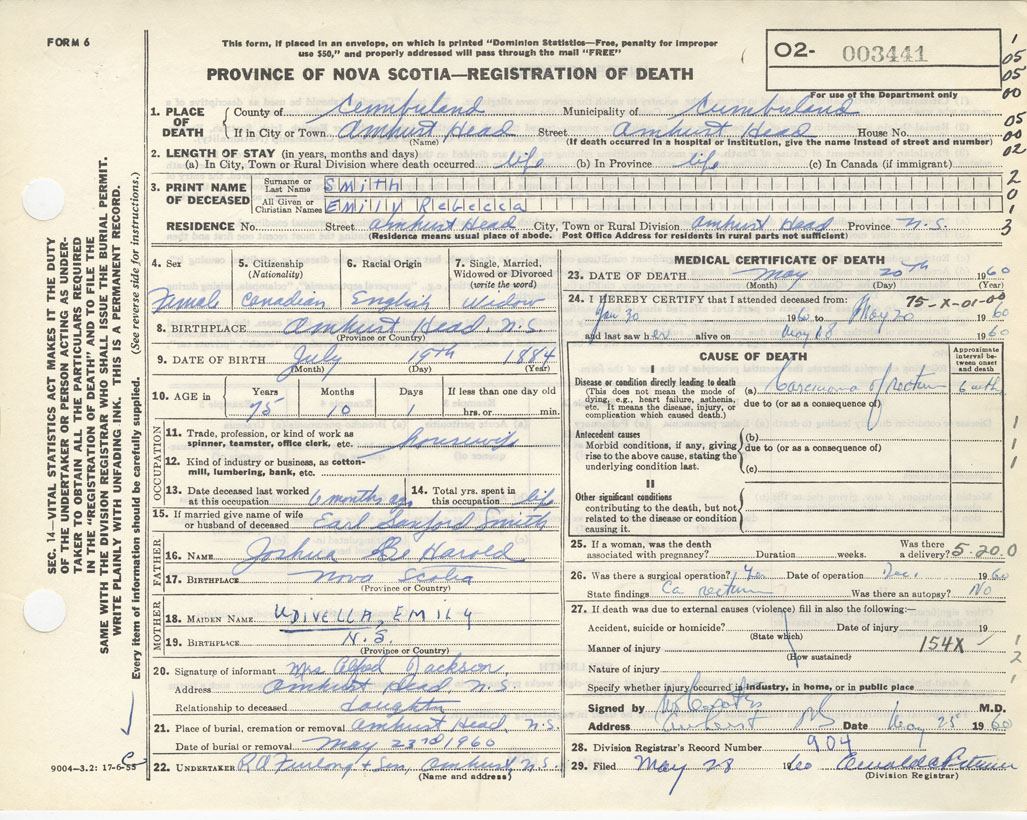 FORM 6
This form, if placed in an envelope, on which is printed "Dominion Statistics—Free, penalty for improper
use $50," and properly addressed will pass through the mail "FREE"
PROVINCE OF NOVA SCOTIA—REGISTRATION OF DEATH
02- 003441
For use of the Department only
1
05
05
00
05
00
02
2
0
1
3
SEC. 14—VITAL STATISTICS ACT MAKES IT THE DUTY
OF THE UNDERTAKER OR PERSON ACTING AS UNDER-
TAKER TO OBTAIN ALL THE PARTICULARS REQUIRED
IN THE "REGISTRATION OF DEATH" AND TO FILE THE
SAME WITH THE DIVISION REGISTRAR WHO SHALL ISSUE THE BURIAL PERMIT.
WRITE PLAINLY WITH UNFADING INK. THIS IS A PERMANENT RECORD.
Every item of information should be carefully supplied. (See reverse side for instructions.)
1. PLACE OF DEATH
County of Cumberland Municipality of Cumberland
If in City or Town Amherst Head Street Amherst Head House No.
(Name) (If death occurred in a hospital or institution, give the name instead of street and number)
2. LENGTH OF STAY (in years, months and days)
(a) In City, Town or Rural Division where death occurred life (b) In Province life (c) In Canada (if immigrant)
3. PRINT NAME OF DECEASED
Surname or Last Name Smith
All Given or Christian Names Emily Rebecca
RESIDENCE No. Street Amherst Head City, Town or Rural Division Amherst Head Province N.S.
(Residence means usual place of abode. Post Office Address for residents in rural parts not sufficient)
4. Sex 5. Citizenship (Nationality) 6. Racial Origin 7. Single, Married, Widowed or Divorced (write the word)
Female Canadian English Widow
8. BIRTHPLACE Amherst Head, N.S.
(Province or Country)
9. DATE OF BIRTH July 19th 1884
(Month) (Day) (Year)
10. AGE in Years Months Days If less than one day old
75 10 1 hrs. or min.
OCCUPATION
11. Trade, profession, or kind of work as spinner, teamster, office clerk, etc. housewife
12. Kind of industry or business, as cotton-mill, lumbering, bank, etc.
13. Date deceased last worked at this occupation 6 months ago 14. Total yrs. spent in this occupation life
15. If married give name of wife or husband of deceased Earl Sanford Smith
FATHER
16. NAME Joshua Harold
17. BIRTHPLACE Nova Scotia
(Province or Country)
MOTHER
18. MAIDEN NAME EMILY
19. BIRTHPLACE N.S.
(Province or Country)
20. Signature of informant Mrs Alfred Jackson
Address Amherst Head, N.S.
Relationship to deceased daughter
21. Place of burial, cremation or removal Amherst Head, N.S.
Date of burial or removal May 23rd 1960
22. UNDERTAKER R.A. Furlong + Son, Amherst, N.S.
(Name and address)
9004-3.2: 17-6-55
MEDICAL CERTIFICATE OF DEATH
23. DATE OF DEATH May 20th 1960
(Month) (Day) (Year)
24. I HEREBY CERTIFY that I attended deceased from: 75-X-01-00
Jan 30 1960 to May 20 1960
and last saw her alive on May 18 1960
CAUSE OF DEATH
Approximate interval between onset and death
I
Disease or condition directly leading to death (a) Carcinoma of rectum 6 mths
(This does not mean the mode of dying, e.g., heart failure, asthenia, etc. It means the disease, injury, or complication which caused death.)
due to (or as a consequence of)
Antecedent causes
Morbid conditions, if any, giving rise to the above cause, stating the underlying condition last.
(b)
due to (or as a consequence of)
(c)
1
1
1
II
Other significant conditions
contributing to the death, but not related to the disease or condition causing it.
25. If a woman, was the death associated with pregnancy? Duration weeks. Was there a delivery? 5.20.0
26. Was there a surgical operation? Yes Date of operation Dec. 1960
State findings Ca rectum Was there an autopsy? No
27. If death was due to external causes (violence) fill in also the following:—
Accident, suicide or homicide? Date of injury 19
(State which)
Manner of injury 154X
(How sustained)
1
2
Nature of injury
Specify whether injury occurred in industry, in home, or in public place
Signed by M.D.
Address Amherst NS Date May 25 1960
28. Division Registrar's Record Number 904
29. Filed May 28 1960
(Division Registrar)